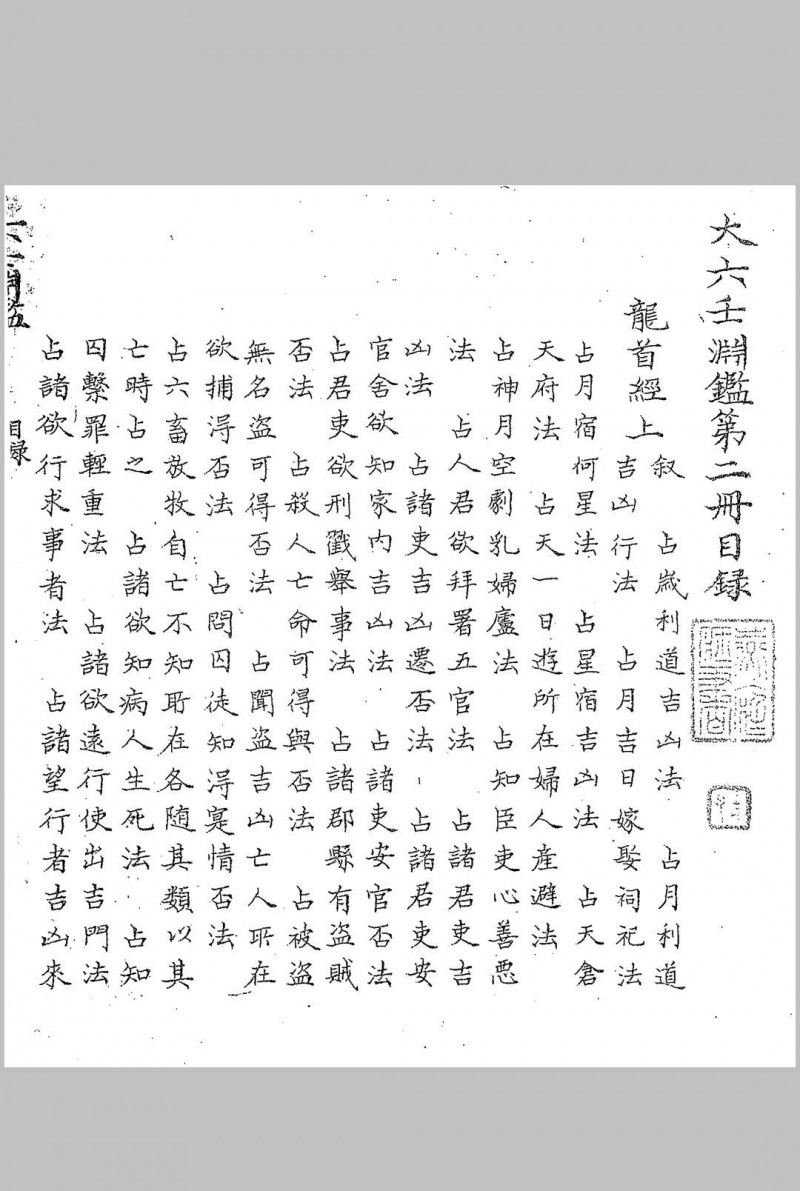 大六壬淵鑑第二冊目録
龍首經上
叙　占歲利道吉凶法　占月利道
吉凶行法　占月吉日嫁娶祠祀法
占月宿何星法　占星宿吉凶法　占天倉
天府法　占天一日遊所在婦人産避法
占神月空劇乳婦廬法　占知臣吏心善惡
法　占人君欲拜署五官法　占諸君吏吉
凶法　占諸吏吉凶遷否法　占諸君吏安
官舍欲知家内吉凶法　占諸吏安官否法
占君吏欲刑戮舉事法　占諸郡縣有盜賊
否法　占殺人亡命可得與否法　占被盜
無名盜可得否法　占聞盜吉凶亡人所在
欲捕得否法　占問囚徒知得寔情否法
占六畜放牧自亡不知所在各随其類以其
亡時占之　占諸欲知病人生死法　占知
囚繫罪輕重法　占諸欲遠行使出吉門法
占諸欲行求事者法　占諸望行者吉凶來
目録